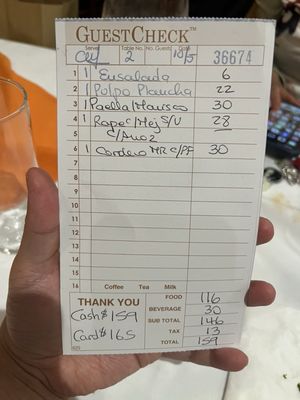 GUESTCHECK™
Server Table No. No. Guests Date
2 10/5 36674
1 1 Ensalada 6
2 1 Pulpo Plancha 22
3 1 Paella/Marisco 30
4 1 Rape c/Mej S/U 28
5 c/Arroz
6 1 Cordero MR c/PF 30
7
8
9
10
11
12
13
14
15
16 Coffee Tea Milk
THANK YOU
Cash$ 159
Card$ 165
FOOD 116
BEVERAGE 30
SUB TOTAL 146
TAX 13
TOTAL 159